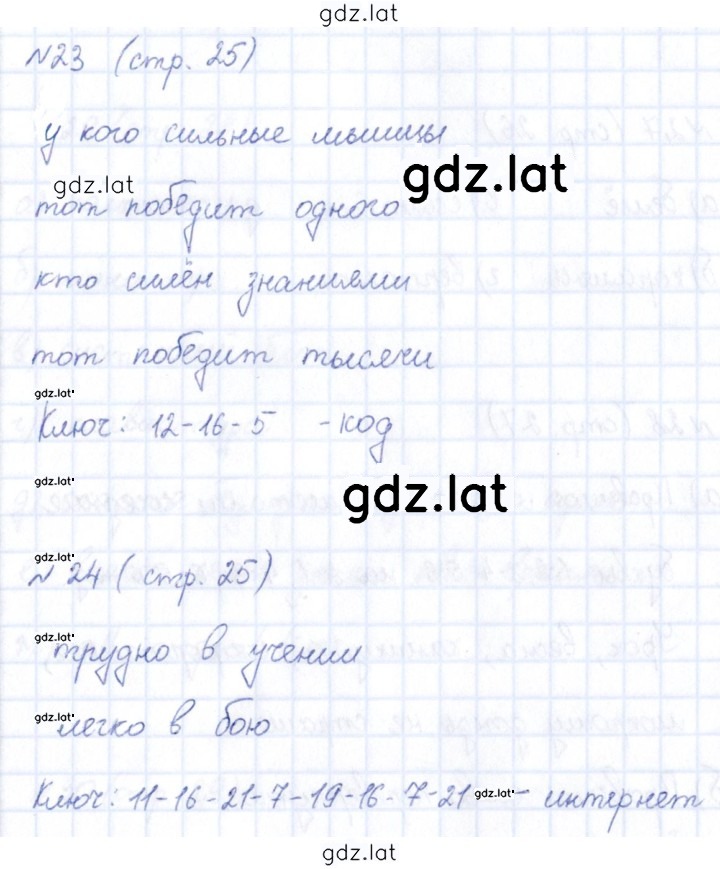 gdz.lat
№23 (стр. 25)
у кого сильные мышцы
gdz.lat
gdz.lat
тот победит одного
кто силён знаниями
тот победит тысячи
gdz.lat
Ключ: 12-16-5 - код
gdz.lat
gdz.lat
gdz.lat
№ 24 (стр. 25)
gdz.lat
трудно в учении
gdz.lat
легко в бою
Ключ: 11-16-21-7-19-16-7-21 gdz.lat - интернет
gdz.lat